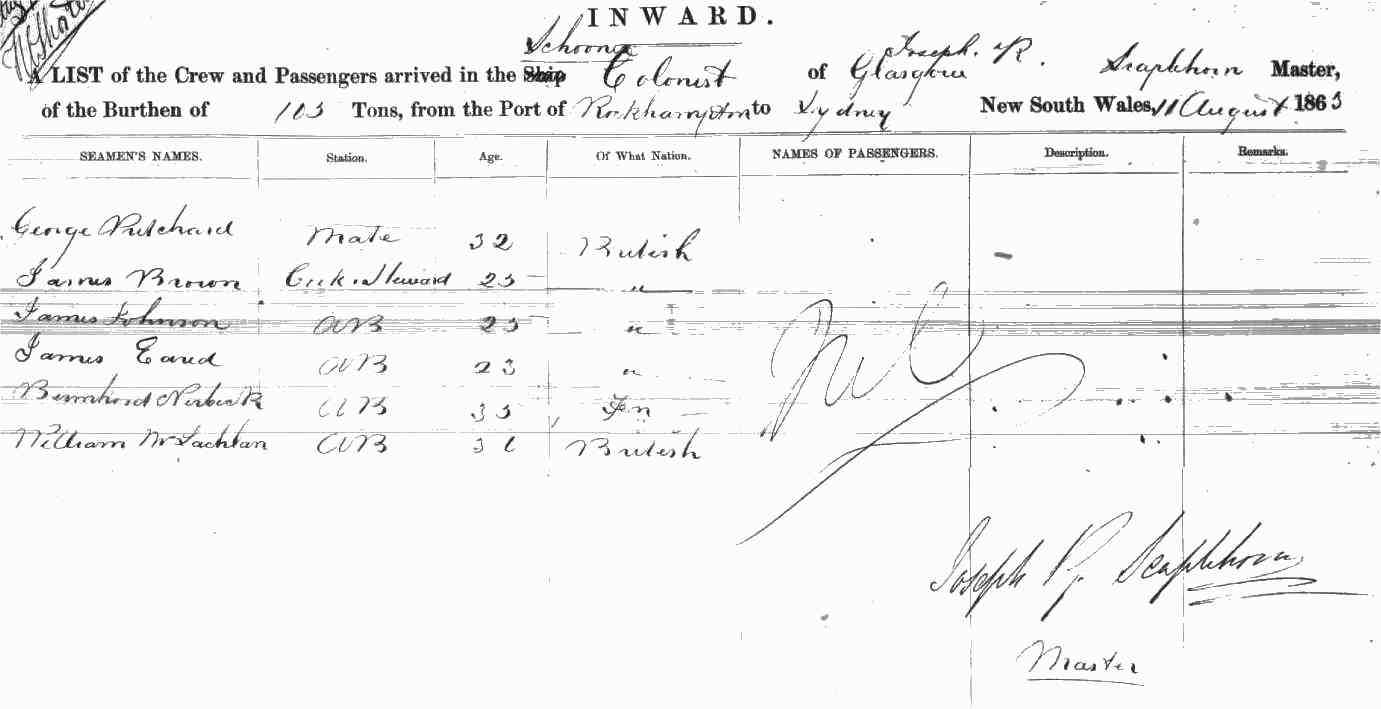 INWARD.
Schooner
Joseph. R.
A LIST of the Crew and Passengers arrived in the Ship Colonist of Glasgow Scaplehorn Master,
of the Burthen of 103 Tons, from the Port of Rockhampton to Sydney New South Wales, 11 August 1863
SEAMEN'S NAMES. Station. Age. Of What Nation. NAMES OF PASSENGERS. Description. Remarks.
George Pritchard Mate 32 British
James Brown Cook & Steward 23 "
James Johnson AB 23 "
James AB 23 "
AB Fin
William McLachlan AB British
Nil
Joseph R. Scaplehorn
Master